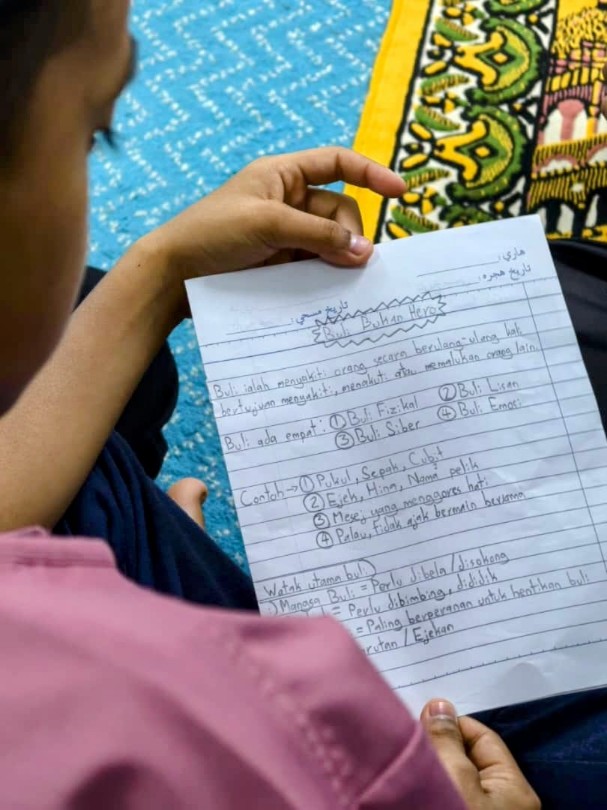 هاري:
تاريخ هجره:
تاريخ مسيحي:
Buli Bukan Hero
Buli ialah menyakiti orang secara berulang-ulang kali
bertujuan menyakiti, menakuti atau memalukan orang lain.
Buli ada empat: ① Buli Fizikal ② Buli Lisan
③ Buli Siber ④ Buli Emosi
Contoh → ① Pukul, Sepak, Cubit
② Ejek, Hina, Nama pelik
③ Mesej yang menggores hati
④ Palau, tidak ajak bermain bersama
Watak utama buli
Mangsa Buli = Perlu dibela / disokong
= Perlu dibimbing, dididik
= Paling berperanan untuk hentikan buli
/ Ejekan